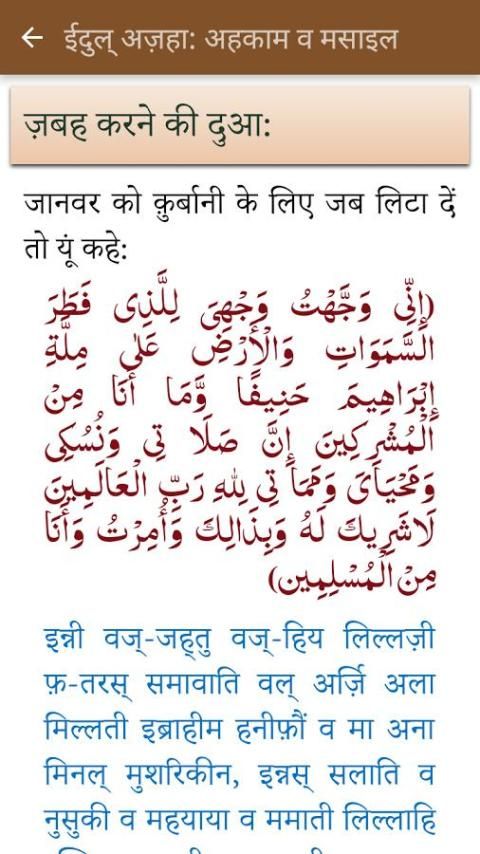 ईदुल् अज़हा: अहकाम व मसाइल
ज़बह करने की दुआ:
जानवर को क़ुर्बानी के लिए जब लिटा दें
तो यूं कहे:
(إِنِّى وَجَّهْتُ وَجْهِىَ لِلَّذِى فَطَرَ
السَّمَوَاتِ وَالْأَرْضِ عَلىٰ مِلَّةِ
إِبْرَاهِيمَ حَنِيفًا وَّمَا أَنَا مِنَ
الْمُشْرِكِينَ إِنَّ صَلَا تِى وَنُسُكِى
وَمَحْيَاىَ وَمَمَا تِى لِلهِ رَبِّ الْعَالَمِينَ
لَاشَرِيكَ لَهُ وَبِذَالِكَ وَأُمِرْتُ وَأَنَا
مِنَ الْمُسْلِمِين)
इन्नी वज्-जह्तु वज्-हिय लिल्लज़ी
फ़-तरस् समावाति वल् अर्ज़ि अला
मिल्लती इब्राहीम हनीफ़ौं व मा अना
मिनल् मुशरिकीन, इन्नस् सलाति व
नुसुकी व महयाया व ममाती लिल्लाहि